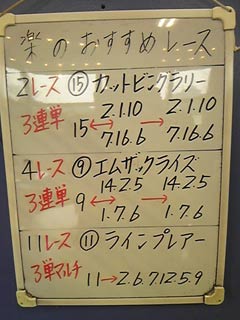 楽のおすすめレース
2レース ⑮カットビングラリー
3連単 2.1.10 2.1.10
15 ↔ →
7.16.6 7.16.6
4レース ⑨エムザックライズ
3連単 14.2.5 14.2.5
9 ↔ →
1.7.6 1.7.6
11レース ⑪ラインプレアー
3単マルチ 11→2.6.7.12.5.9